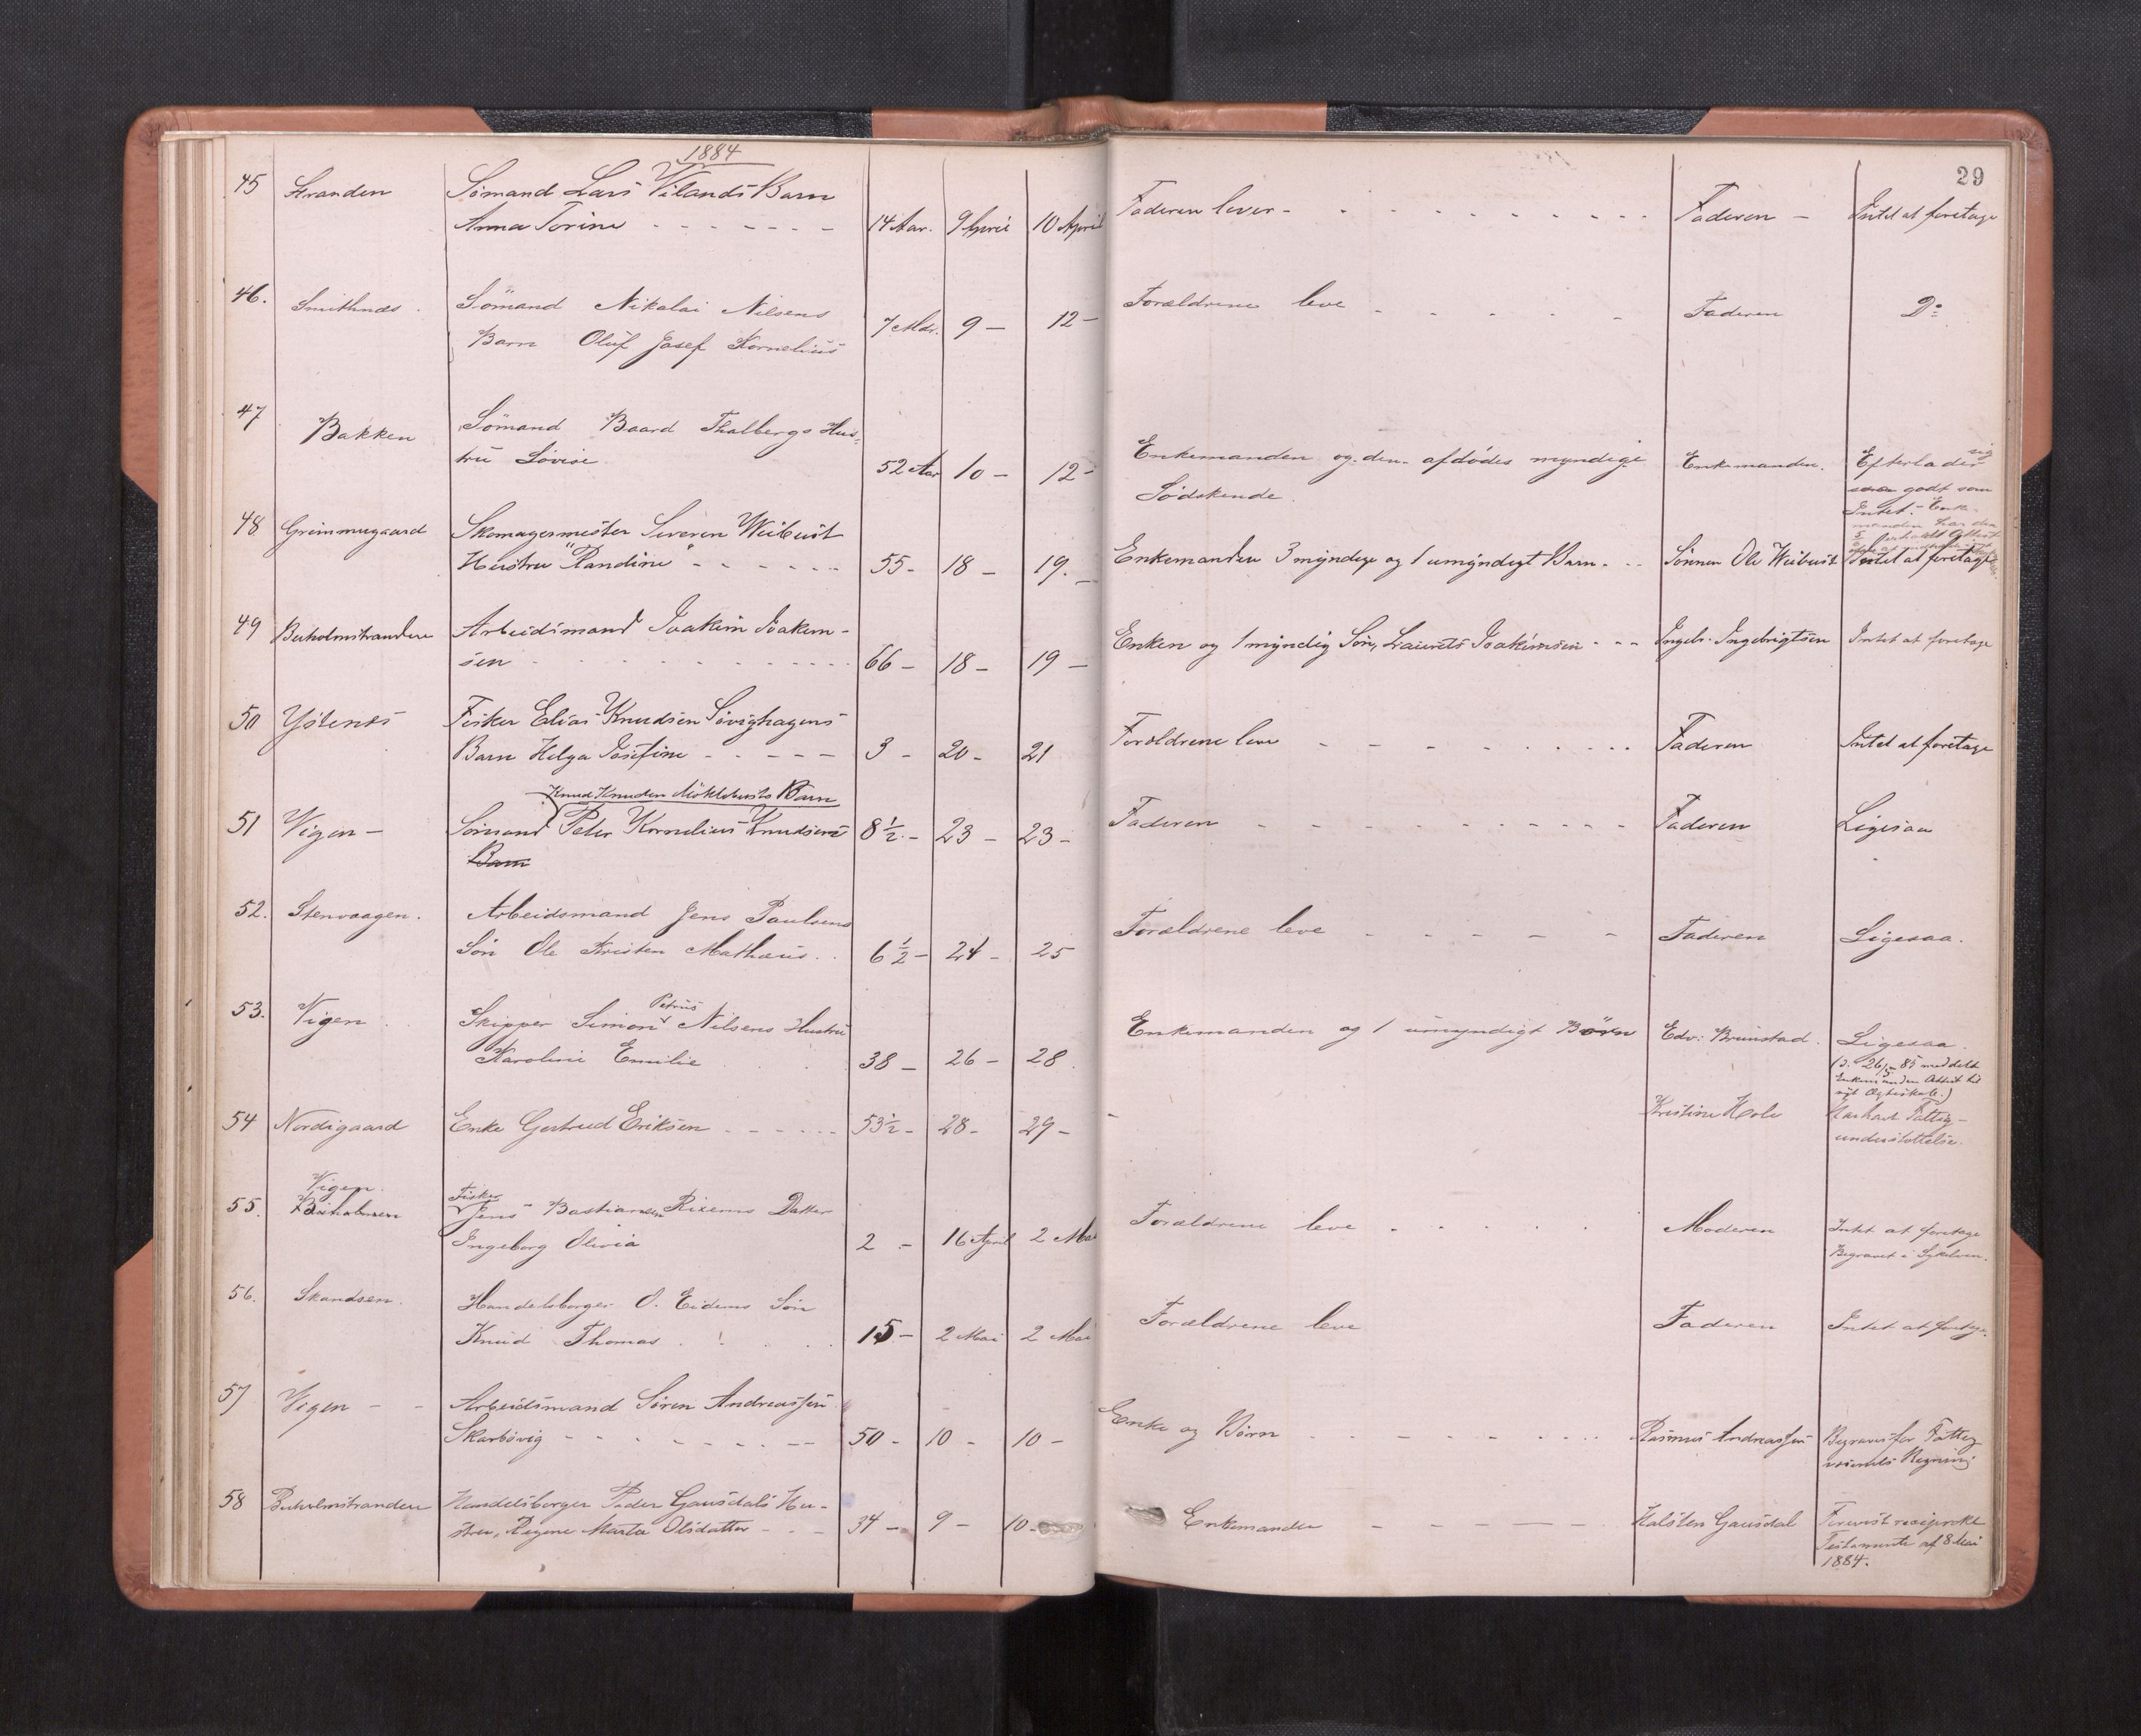 1884
29
45 Stranden Sömand Lars Vilands Barn
Anna Torine - - - - - - - 14 Aar. 9 April 10 April Faderen lever - - - - - - - - - Faderen - Intet at foretage
46. Smithnæs. Sömand Nikolai Nilsens
Barn Oluf Josef Kornelius 7 Mdr. 9 - 12 - Forældrene leve - - - - - Faderen Do
47 Bakken Sömand Baard Thalbergs Hus-
tru Lovise 52 Aar 10 - 12 - Enkemanden og den afdödes myndige Enkemanden. Efterlader sig
Södskende. godt som
Intet. - Enke-
manden har den
48 Grimmugaard Skomagermester Severin Weibust
Hustru "Randine" - - - - - - 55 - 18 - 19. - Enkemanden 3 myndige og 1 umyndigt Barn - - Sönnen Ole Weibust Intet at foretage
49 Buholmstranden Arbeidsmand Joakim Joakim-
sen - - - - - - - - - 66 - 18 - 19 - Enken og 1 myndig Sön, Laurits Joakimsen - - - Ingebr. Ingebrigtsen Intet at foretage
50 Ystenes Fisker Elias Knudsen Sövighagens
Barn Helga Josefine - - - - - 3 - 20 - 21 Forældrene leve - - - - - - - - - Faderen Intet at foretage
Knud Knudsen Möklebusts Barn
51 Vigen - Sömand Peter Kornelius Knudsens 8 1/2 - 23 - 23 - Faderen - - - - - - - - - - - Faderen Ligesaa
Barn
52. Stenvaagen. Arbeidsmand Jens Paulsens
Sön Ole Kristen Mathæus. . 6 1/2 - 24 - 25 Forældrene leve - - - - - - Faderen Ligesaa.
53. Vigen. Skipper Simon Petrus Nilsens Hustru
Karoline Emilie 38 - 26 - 28 Enkemanden og 1 umyndigt Börn Edv. Brunstad. Ligesaa.
(d. 26/5 - 85 meddelt
Enkemanden Attest til
nyt Ægteskab.)
54 Nordigaard Enke Gertrud Eriksen - - - - - - 53 1/2 - 28 - 29 - - Kristine Hole Har havt Fattig-
understöttelse.
Vigen.
55. Buholmen Fisker Jens Bastiansen Rixems Datter
Ingeborg Olivia 2 - 16 April 2 Mai Forældrene leve - - - - - Moderen Intet at foretage
Begravet i Sykelven.
56. Skandsen. Handelsborger O. Eidems Sön
Knud Thomas. 15 - 2 Mai 2 Mai Forældrene leve Faderen Intet at foretage.
57 Vigen - - Arbeidsmand Sören Andreassen
Skarbövig - - - - - - - - - 50 - 10 - 10 - Enke og Börn - - - - - - - - Rasmus Andreassen Begraves for Fattig-
væsenets Regning
58 Buholmstranden Handelsborger Peder Gausdals Hu-
stru, Regine Marta Olsdatter - - - 34 - 9 - 10 - Enkemanden - - - - - - Halsten Gausdal Forevist reciproke
Testamente af 8 Mai
1884.